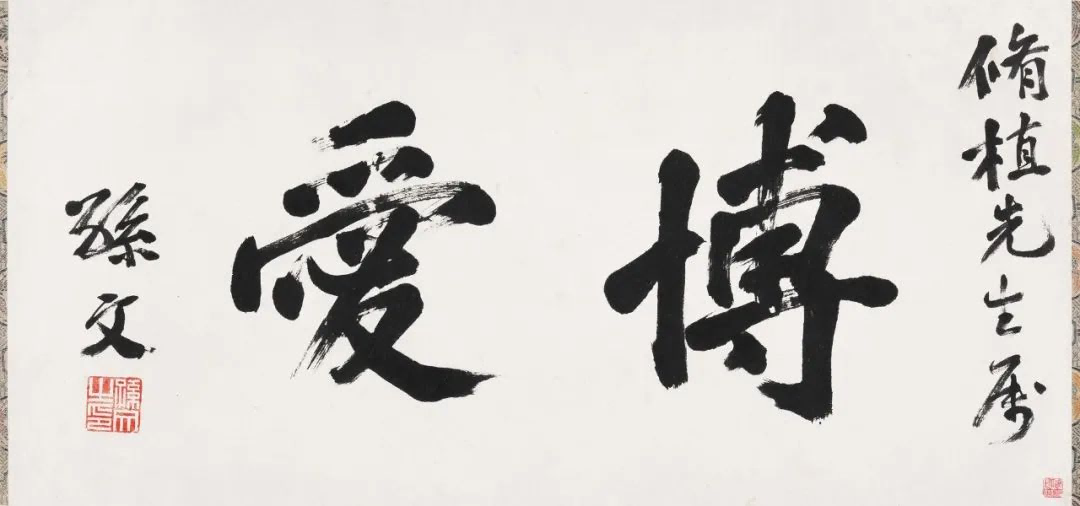 脩植先生属
博愛
孫文
孫文之印